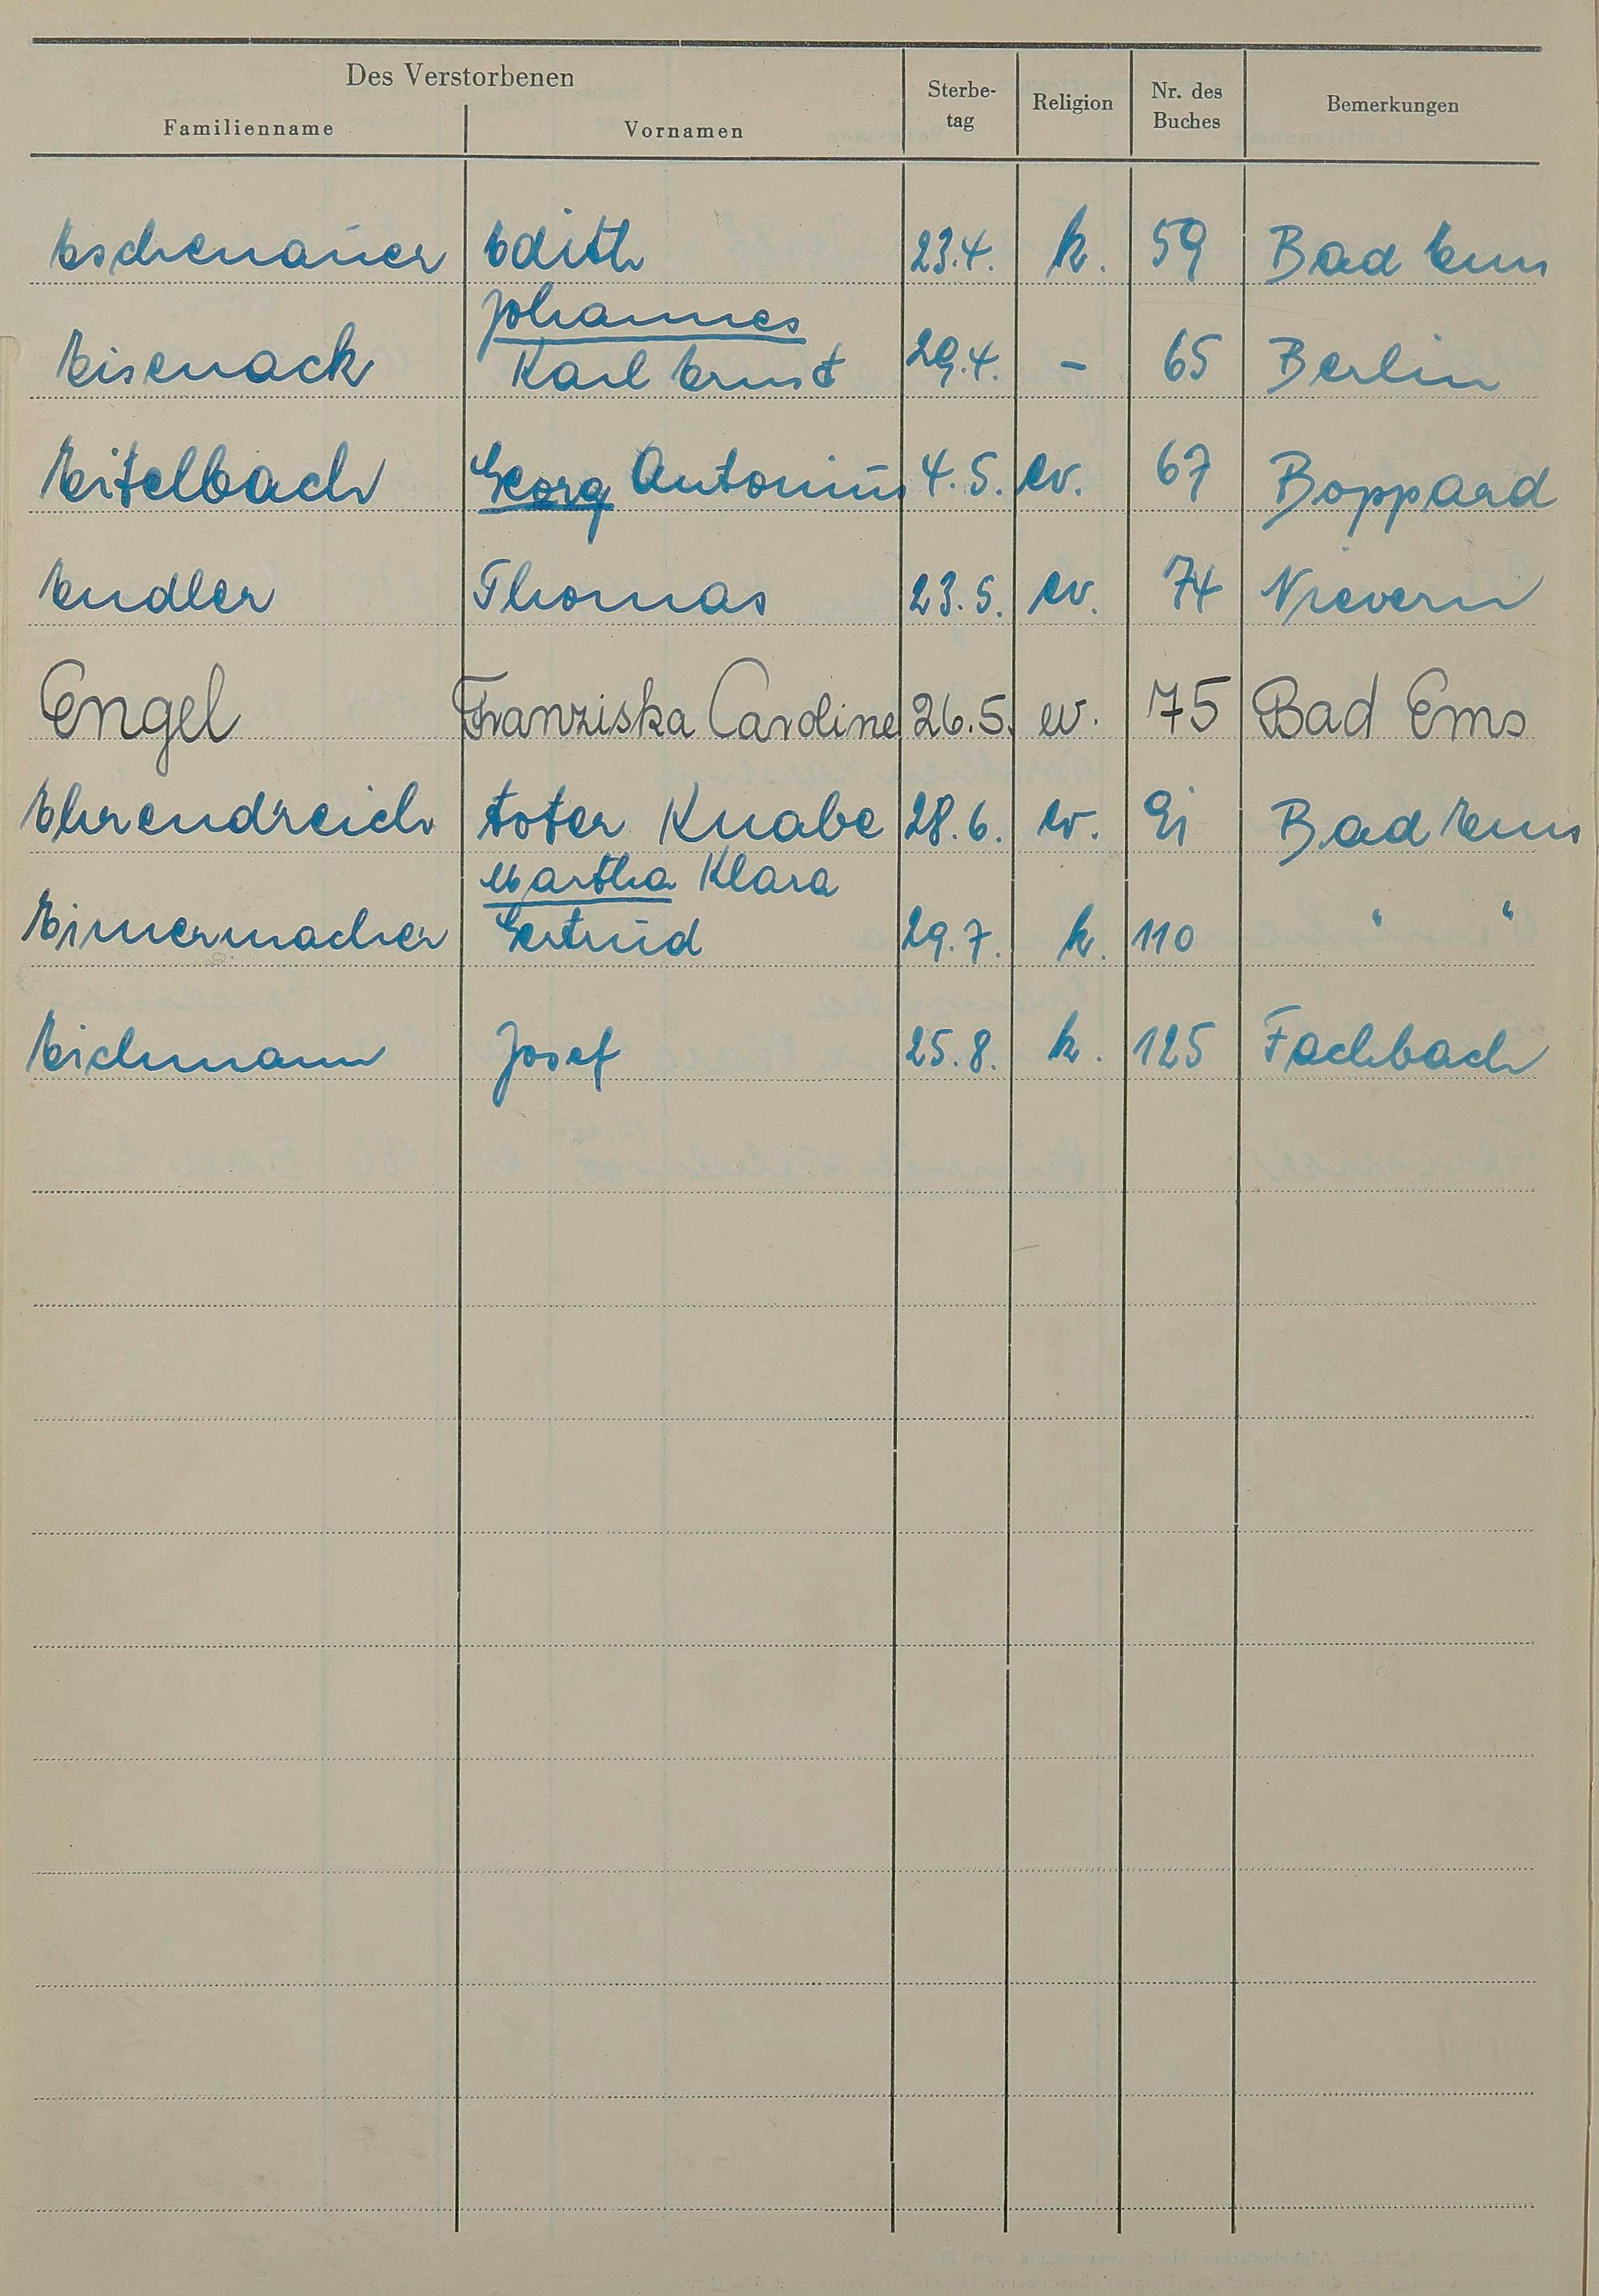 Des Verstorbenen
Familienname Vornamen Sterbe-tag Religion Nr. des Buches Bemerkungen
Eschenauer Edith 23.4. k. 59 Bad Ems
Johannes
Eisenack Karl Ernst 29.4. - 65 Berlin
Eitelbach Georg Antonius 4.5. ev. 67 Boppard
Endler Thomas 23.5. ev. 74 Nievern
Engel Franziska Caroline 26.5. ev. 75 Bad Ems
Ehrendreich toter Knabe 28.6. ev. 91 Bad Ems
Martha Klara
Eimermacher Gertrud 29.7. k. 110 " "
Eichmann Josef 25.8. k. 125 Fachbach